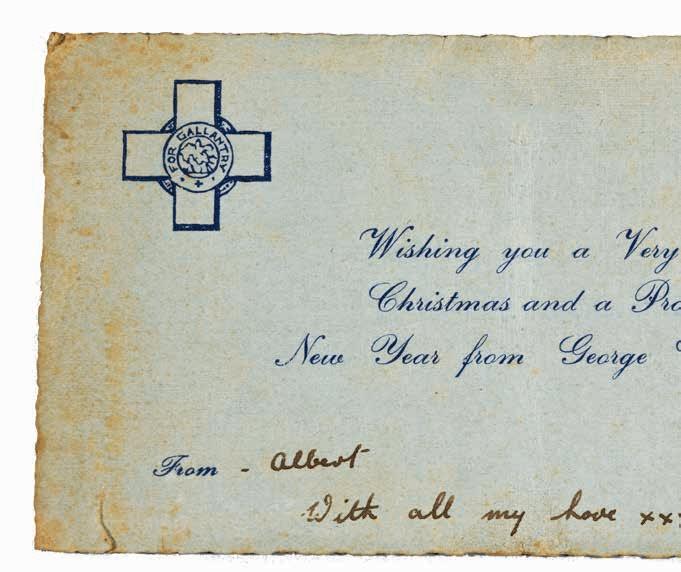 FOR GALLANTRY
Wishing you a Very
Christmas and a Pro
New Year from George
From - Albert
With all my love xxx